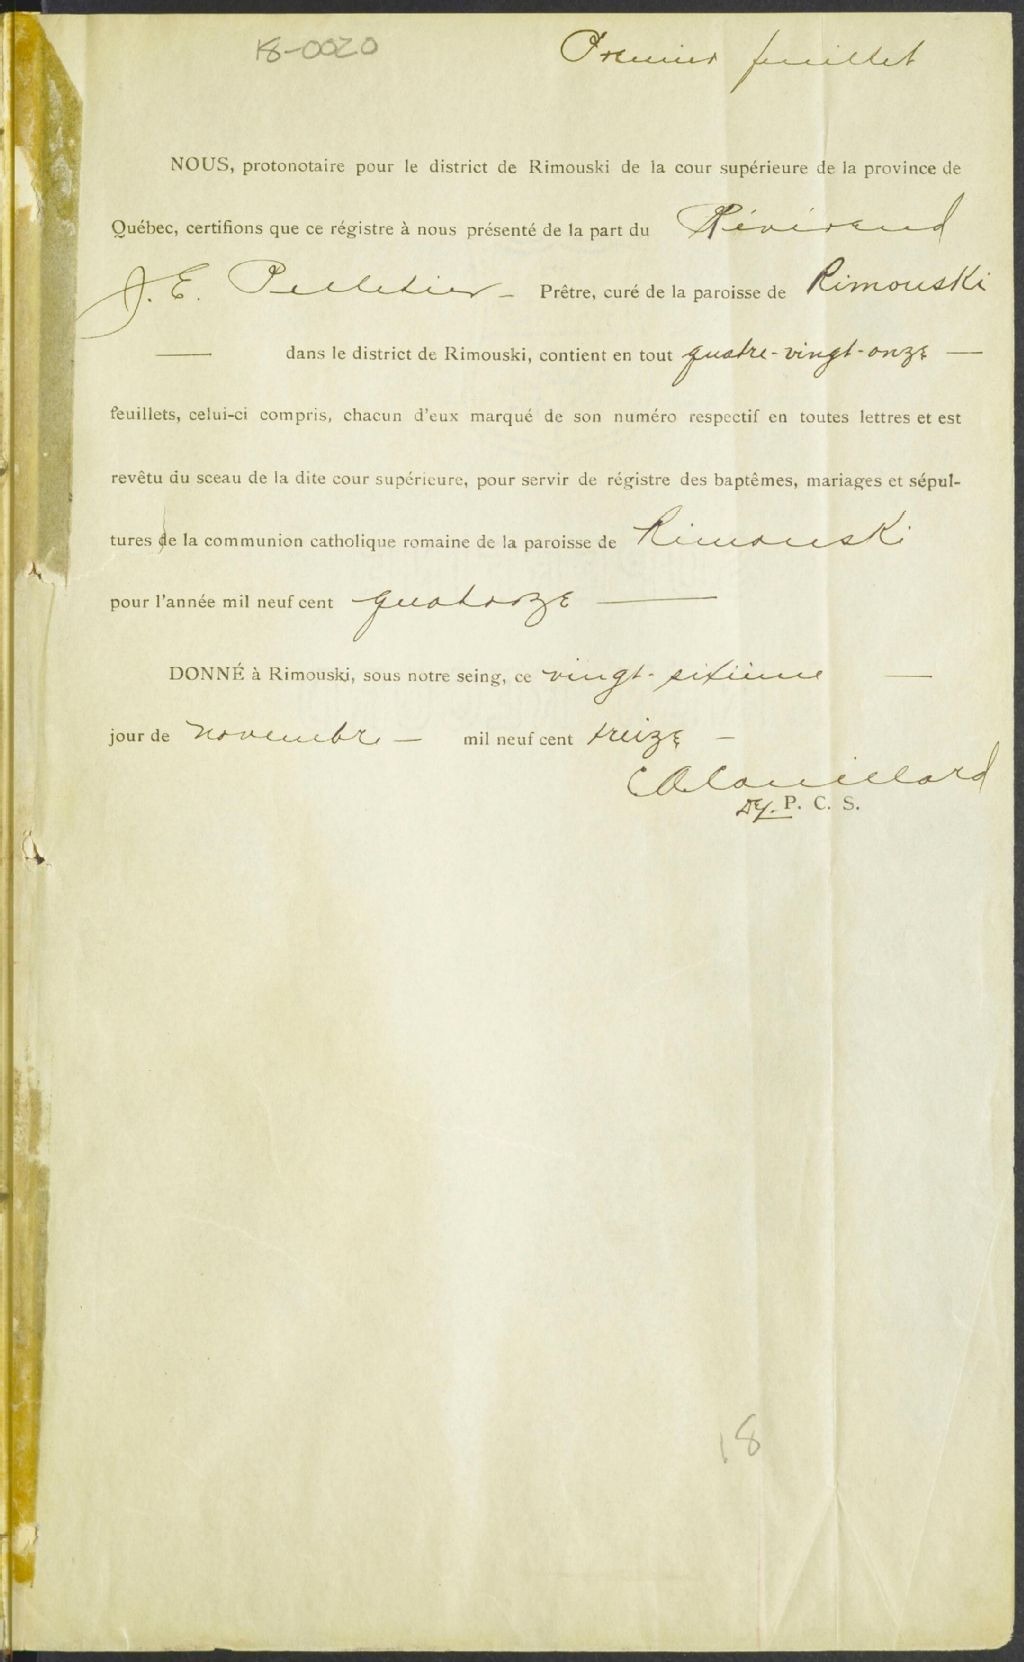 18-0020
Premier feuillet
NOUS, protonotaire pour le district de Rimouski de la cour supérieure de la province de
Québec, certifions que ce régistre à nous présenté de la part du Révérend
J. E. Pelletier - Prêtre, curé de la paroisse de Rimouski
— dans le district de Rimouski, contient en tout quatre-vingt-onze —
feuillets, celui-ci compris, chacun d'eux marqué de son numéro respectif en toutes lettres et est
revêtu du sceau de la dite cour supérieure, pour servir de régistre des baptêmes, mariages et sépul-
tures de la communion catholique romaine de la paroisse de Rimouski
pour l'année mil neuf cent quatorze —
DONNÉ à Rimouski, sous notre seing, ce vingt-sixième —
jour de novembre — mil neuf cent treize —
Dy. P. C. S.
18